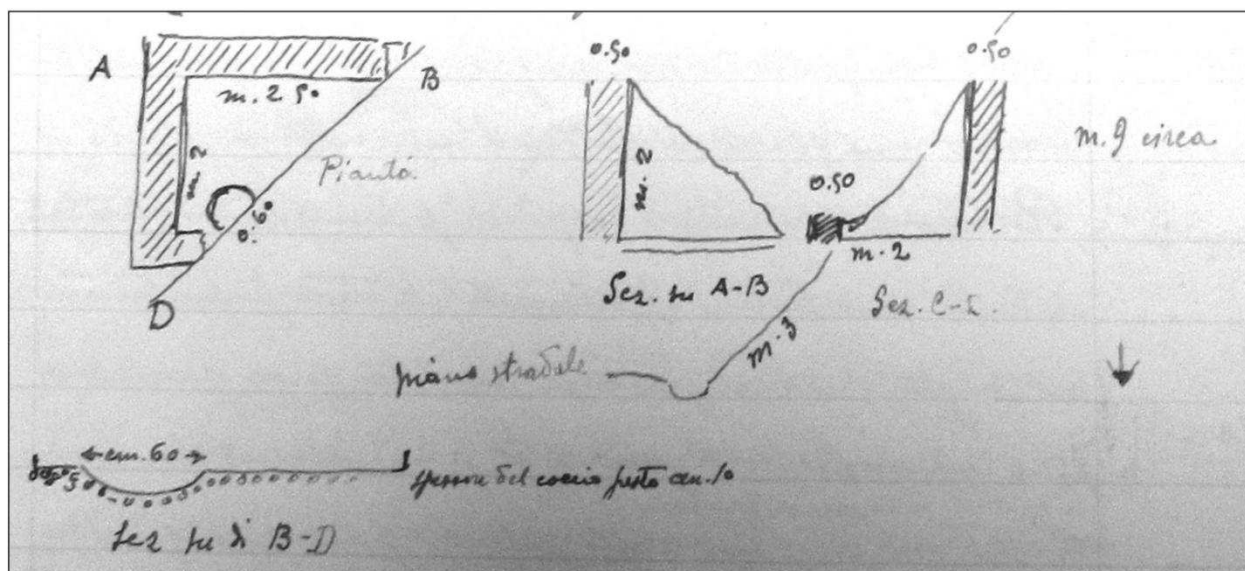 A
B
m. 2 50
m. 2
Pianta
0.60
D
0.50
m. 2
Sez. su A-B
0.50
0.50
m. 2
Sez. C-
m. 9 circa
m. 3
piano stradale
cm. 60
spessore del coccio pesto cm. 10
Sez su di B-D